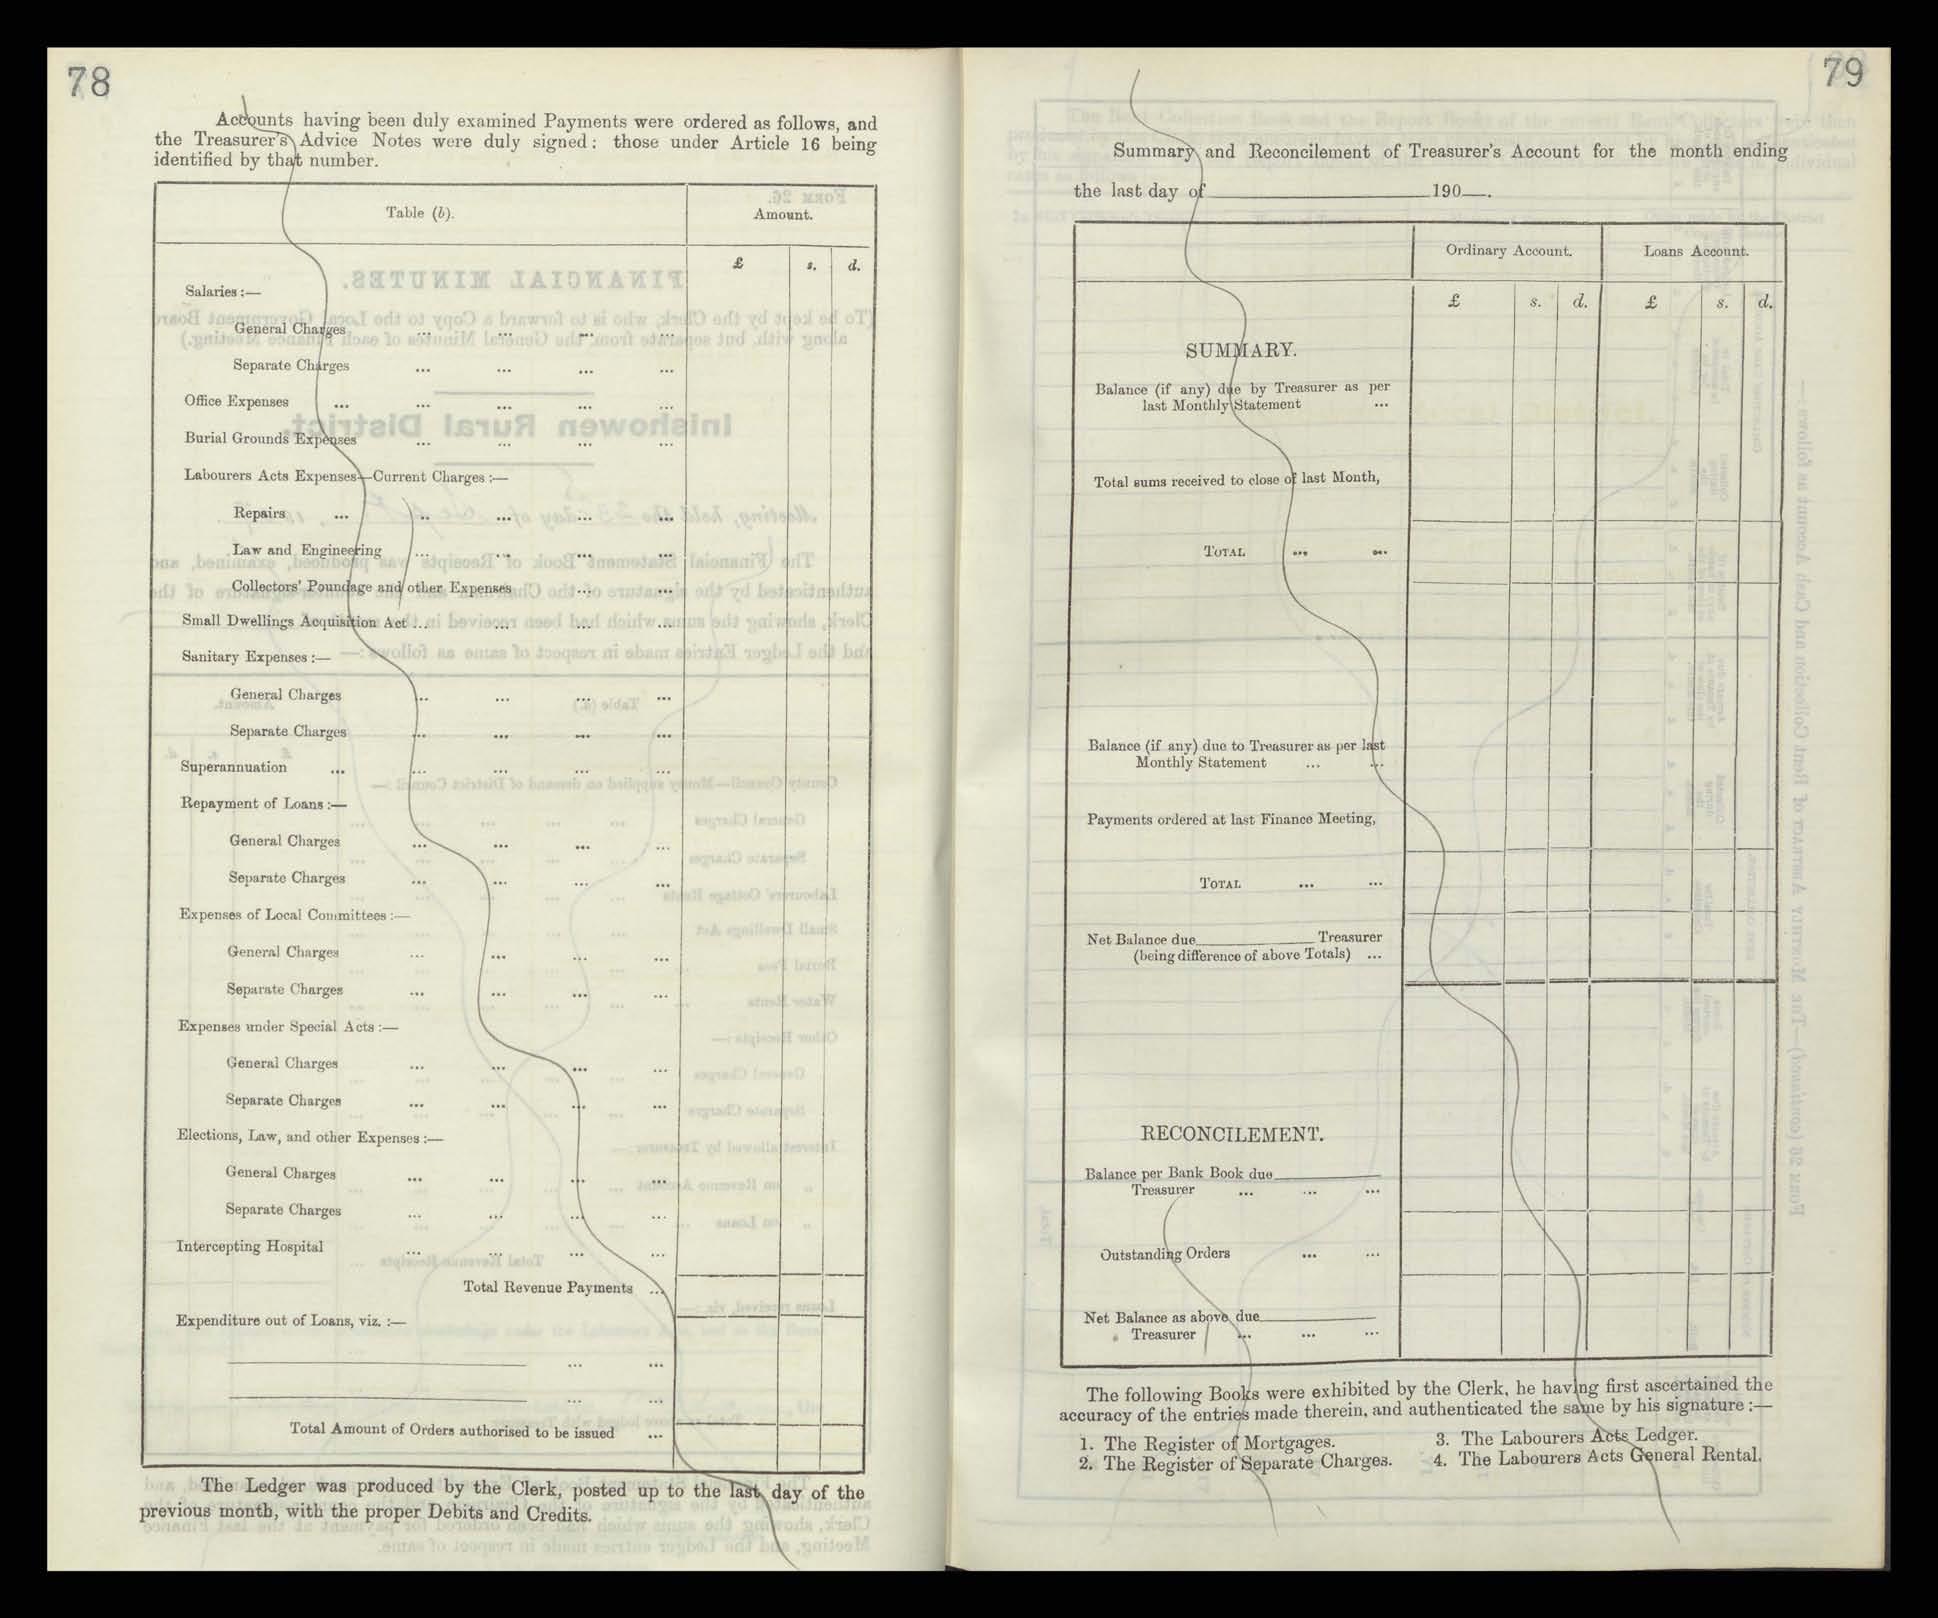 78
Accounts having been duly examined Payments were ordered as follows, and
the Treasurer's Advice Notes were duly signed: those under Article 16 being
identified by that number.
Table (b).
Amount.
£ s. d.
Salaries :—
General Charges ... ... ... ...
Separate Charges ... ... ... ...
Office Expenses ... ... ... ... ...
Burial Grounds Expenses ... ... ... ...
Labourers Acts Expenses—Current Charges :—
Repairs ... ... ... ... ...
Law and Engineering ... ... ... ...
Collectors' Poundage and other Expenses ... ...
Small Dwellings Acquisition Act ... ... ... ...
Sanitary Expenses :—
General Charges ... ... ... ...
Separate Charges ... ... ... ...
Superannuation ... ... ... ... ...
Repayment of Loans :—
General Charges ... ... ... ...
Separate Charges ... ... ... ...
Expenses of Local Committees :—
General Charges ... ... ... ...
Separate Charges ... ... ... ...
Expenses under Special Acts :—
General Charges ... ... ... ...
Separate Charges ... ... ... ...
Elections, Law, and other Expenses :—
General Charges ... ... ... ...
Separate Charges ... ... ... ...
Intercepting Hospital ... ... ... ...
Total Revenue Payments ...
Expenditure out of Loans, viz. :—
... ...
... ...
Total Amount of Orders authorised to be issued ...
The Ledger was produced by the Clerk, posted up to the last day of the
previous month, with the proper Debits and Credits.
79
Summary and Reconcilement of Treasurer's Account for the month ending
the last day of ______ 190__.
Ordinary Account. Loans Account.
£ s. d. £ s. d.
SUMMARY.
Balance (if any) due by Treasurer as per
last Monthly Statement ...
Total sums received to close of last Month,
TOTAL ... ...
Balance (if any) due to Treasurer as per last
Monthly Statement ... ...
Payments ordered at last Finance Meeting,
TOTAL ... ...
Net Balance due ______ Treasurer
(being difference of above Totals) ...
RECONCILEMENT.
Balance per Bank Book due ______
Treasurer ... ... ...
Outstanding Orders ... ...
Net Balance as above due ______
Treasurer ... ... ...
The following Books were exhibited by the Clerk, he having first ascertained the
accuracy of the entries made therein, and authenticated the same by his signature :—
1. The Register of Mortgages.
2. The Register of Separate Charges.
3. The Labourers Acts Ledger.
4. The Labourers Acts General Rental.